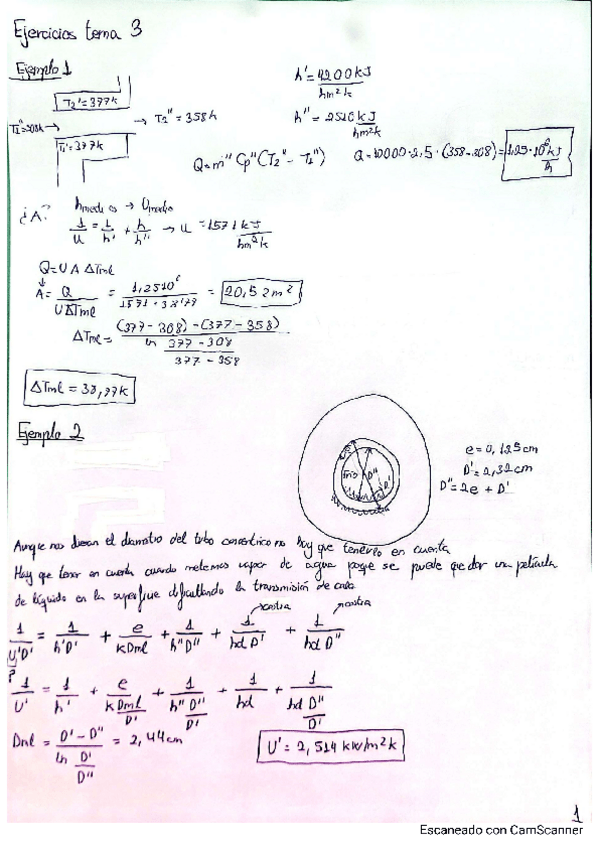 Ejercicios tema 3
Ejemplo 1
T2' = 377k
T1''=308k → → T2'' = 358k
T1' = 377k
h' = 4200 kJ/hm²k
h'' = 2510 kJ/hm²k
Q = m'' Cp'' (T2'' - T1'') Q = 10000 · 2,5 · (358 - 308) = 1,25 · 10⁶ kJ/h
¿A? hmedios → Umedio
1/U = 1/h' + 1/h'' → U = 1571 kJ/hm²k
Q = U A ΔTml
A = Q/UΔTml = 1,25·10⁶/1571 · 38,77 = 20,52 m²
ΔTml = (377 - 308) - (377 - 358) / ln 377 - 308/377 - 358
ΔTml = 38,77k
Ejemplo 2
frio D''
e = 0,125cm
D' = 2,32cm
D'' = 2e + D'
Aunque nos diesen el diametro del tubo concentrico no hay que tenerlo en cuenta
Hay que tener en cuenta cuando metemos vapor de agua porque se puede quedar una película
de líquido en la superficie dificultando la transmisión de calor
1/U'D' = 1/h'D' + e/kDml + 1/h''D'' + 1/hd D' + 1/hd D''
?
1/U' = 1/h' + e/k Dml/D' + 1/h'' D''/D' + 1/hd + 1/hd D''/D'
Dml = D' - D''/ln D'/D'' = 2,44cm U' = 2,514 kW/m²k
1
Escaneado con CamScanner